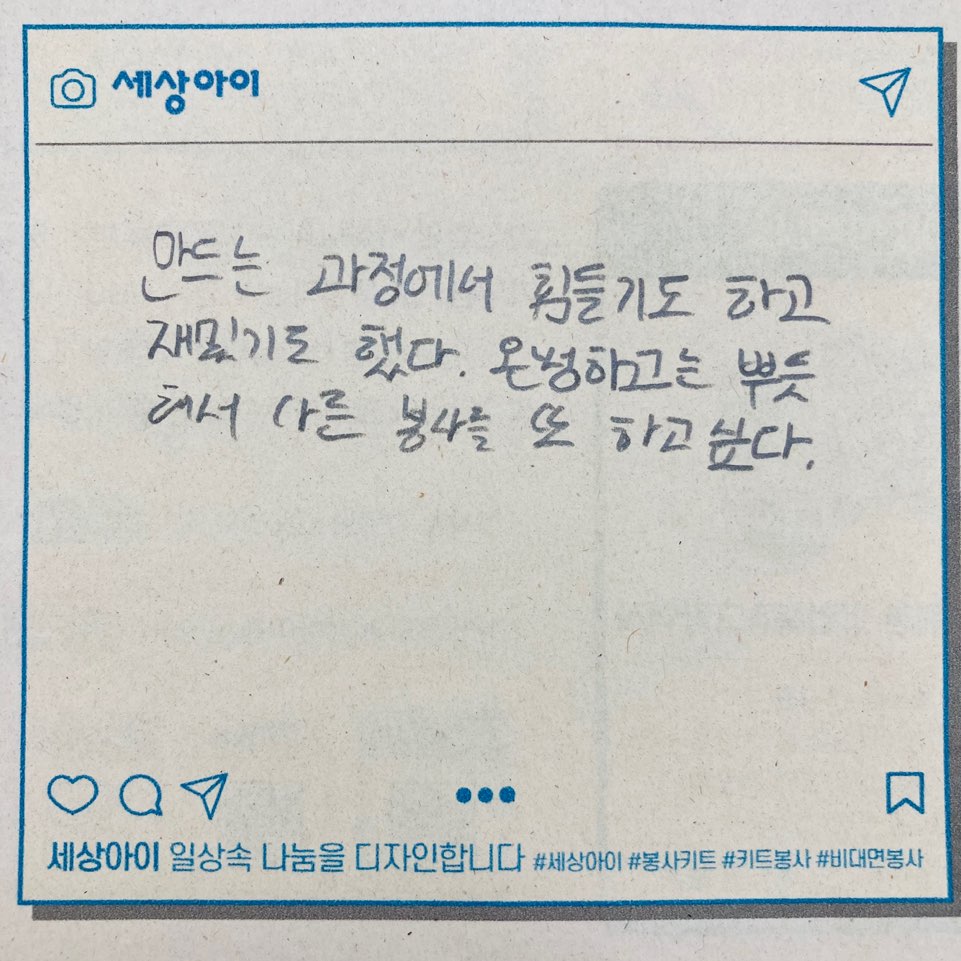 세상아이
만드는 과정에서 힘들기도 하고
재밌기도 했다. 완성하고는 뿌듯
해서 다른 봉사를 또 하고 싶다.
세상아이 일상속 나눔을 디자인합니다 #세상아이 #봉사키트 #키트봉사 #비대면봉사